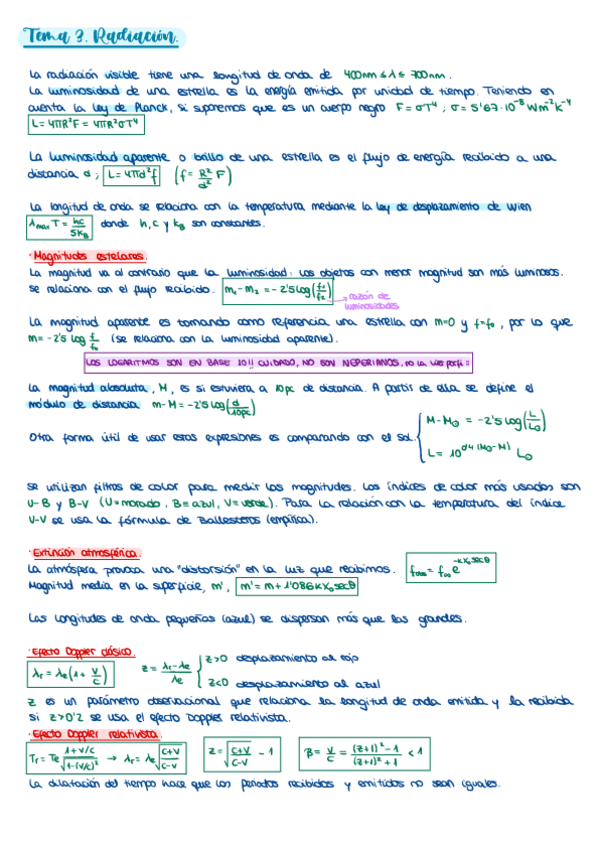 Tema 3. Radiación.
La radiación visible tiene una longitud de onda de 400nm ≤ λ ≤ 700nm.
La luminosidad de una estrella es la energía emitida por unidad de tiempo. Teniendo en
cuenta la Ley de Planck, si suponemos que es un cuerpo negro F = σT⁴ ; σ = 5'67·10⁻⁸ Wm⁻²K⁻⁴
L = 4πR²F = 4πR²σT⁴
La luminosidad aparente o brillo de una estrella es el flujo de energía recibido a una
distancia d ; L = 4πd²f (f = R²/d² F)
La longitud de onda se relaciona con la temperatura mediante la ley de desplazamiento de Wien
λmax T = hc/5kB donde h, c y kB son constantes.
· Magnitudes estelares.
La magnitud va al contrario que la luminosidad: Los objetos con menor magnitud son más luminosos.
Se relaciona con el flujo recibido. m₁-m₂ = -2'5 log(f₁/f₂)
→ razón de
luminosidades
La magnitud aparente es tomando como referencia una estrella con m=0 y f=f₀, por lo que
m = -2'5 log f/f₀ (se relaciona con la luminosidad aparente).
LOS LOGARITMOS SON EN BASE 10!! CUIDADO, NO SON NEPERIANOS, no la
La magnitud absoluta, M, es si estuviera a 10pc de distancia. A partir de ella se define el
módulo de distancia m-M = -2'5 log(d/10pc)
M-M⊙ = -2'5 log(L/L⊙)
Otra forma útil de usar estas expresiones es comparando con el Sol.
L = 10^0'4(M⊙-M) L⊙
Se utilizan filtros de color para medir las magnitudes. Los índices de color más usados son
U-B y B-V (U=morado, B=azul, V=verde). Para la relación con la temperatura del índice
V-V se usa la fórmula de Ballesteros (empírica).
· Extinción atmosférica.
La atmósfera provoca una "distorsión" en la luz que recibimos. fobs = f∞ e^-kX₀secθ
Magnitud media en la superficie, m', m' = m + 1'086kX₀secθ
Las longitudes de onda pequeñas (azul) se dispersan más que las grandes.
· Efecto Doppler clásico.
λr = λe(1 + v/c) z = λr-λe/λe { z>0 desplazamiento al rojo
z<0 desplazamiento al azul
z es un parámetro observacional que relaciona la longitud de onda emitida y la recibida
si z>0'2 se usa el efecto Doppler relativista.
· Efecto Doppler relativista.
Tr = Te 1+v/c/√1-(v/c)² → λr = λe √c+v/c-v z = √c+v/c-v - 1 β = v/c = (z+1)²-1/(z+1)²+1 < 1
La dilatación del tiempo hace que los periodos recibidos y emitidos no sean iguales.